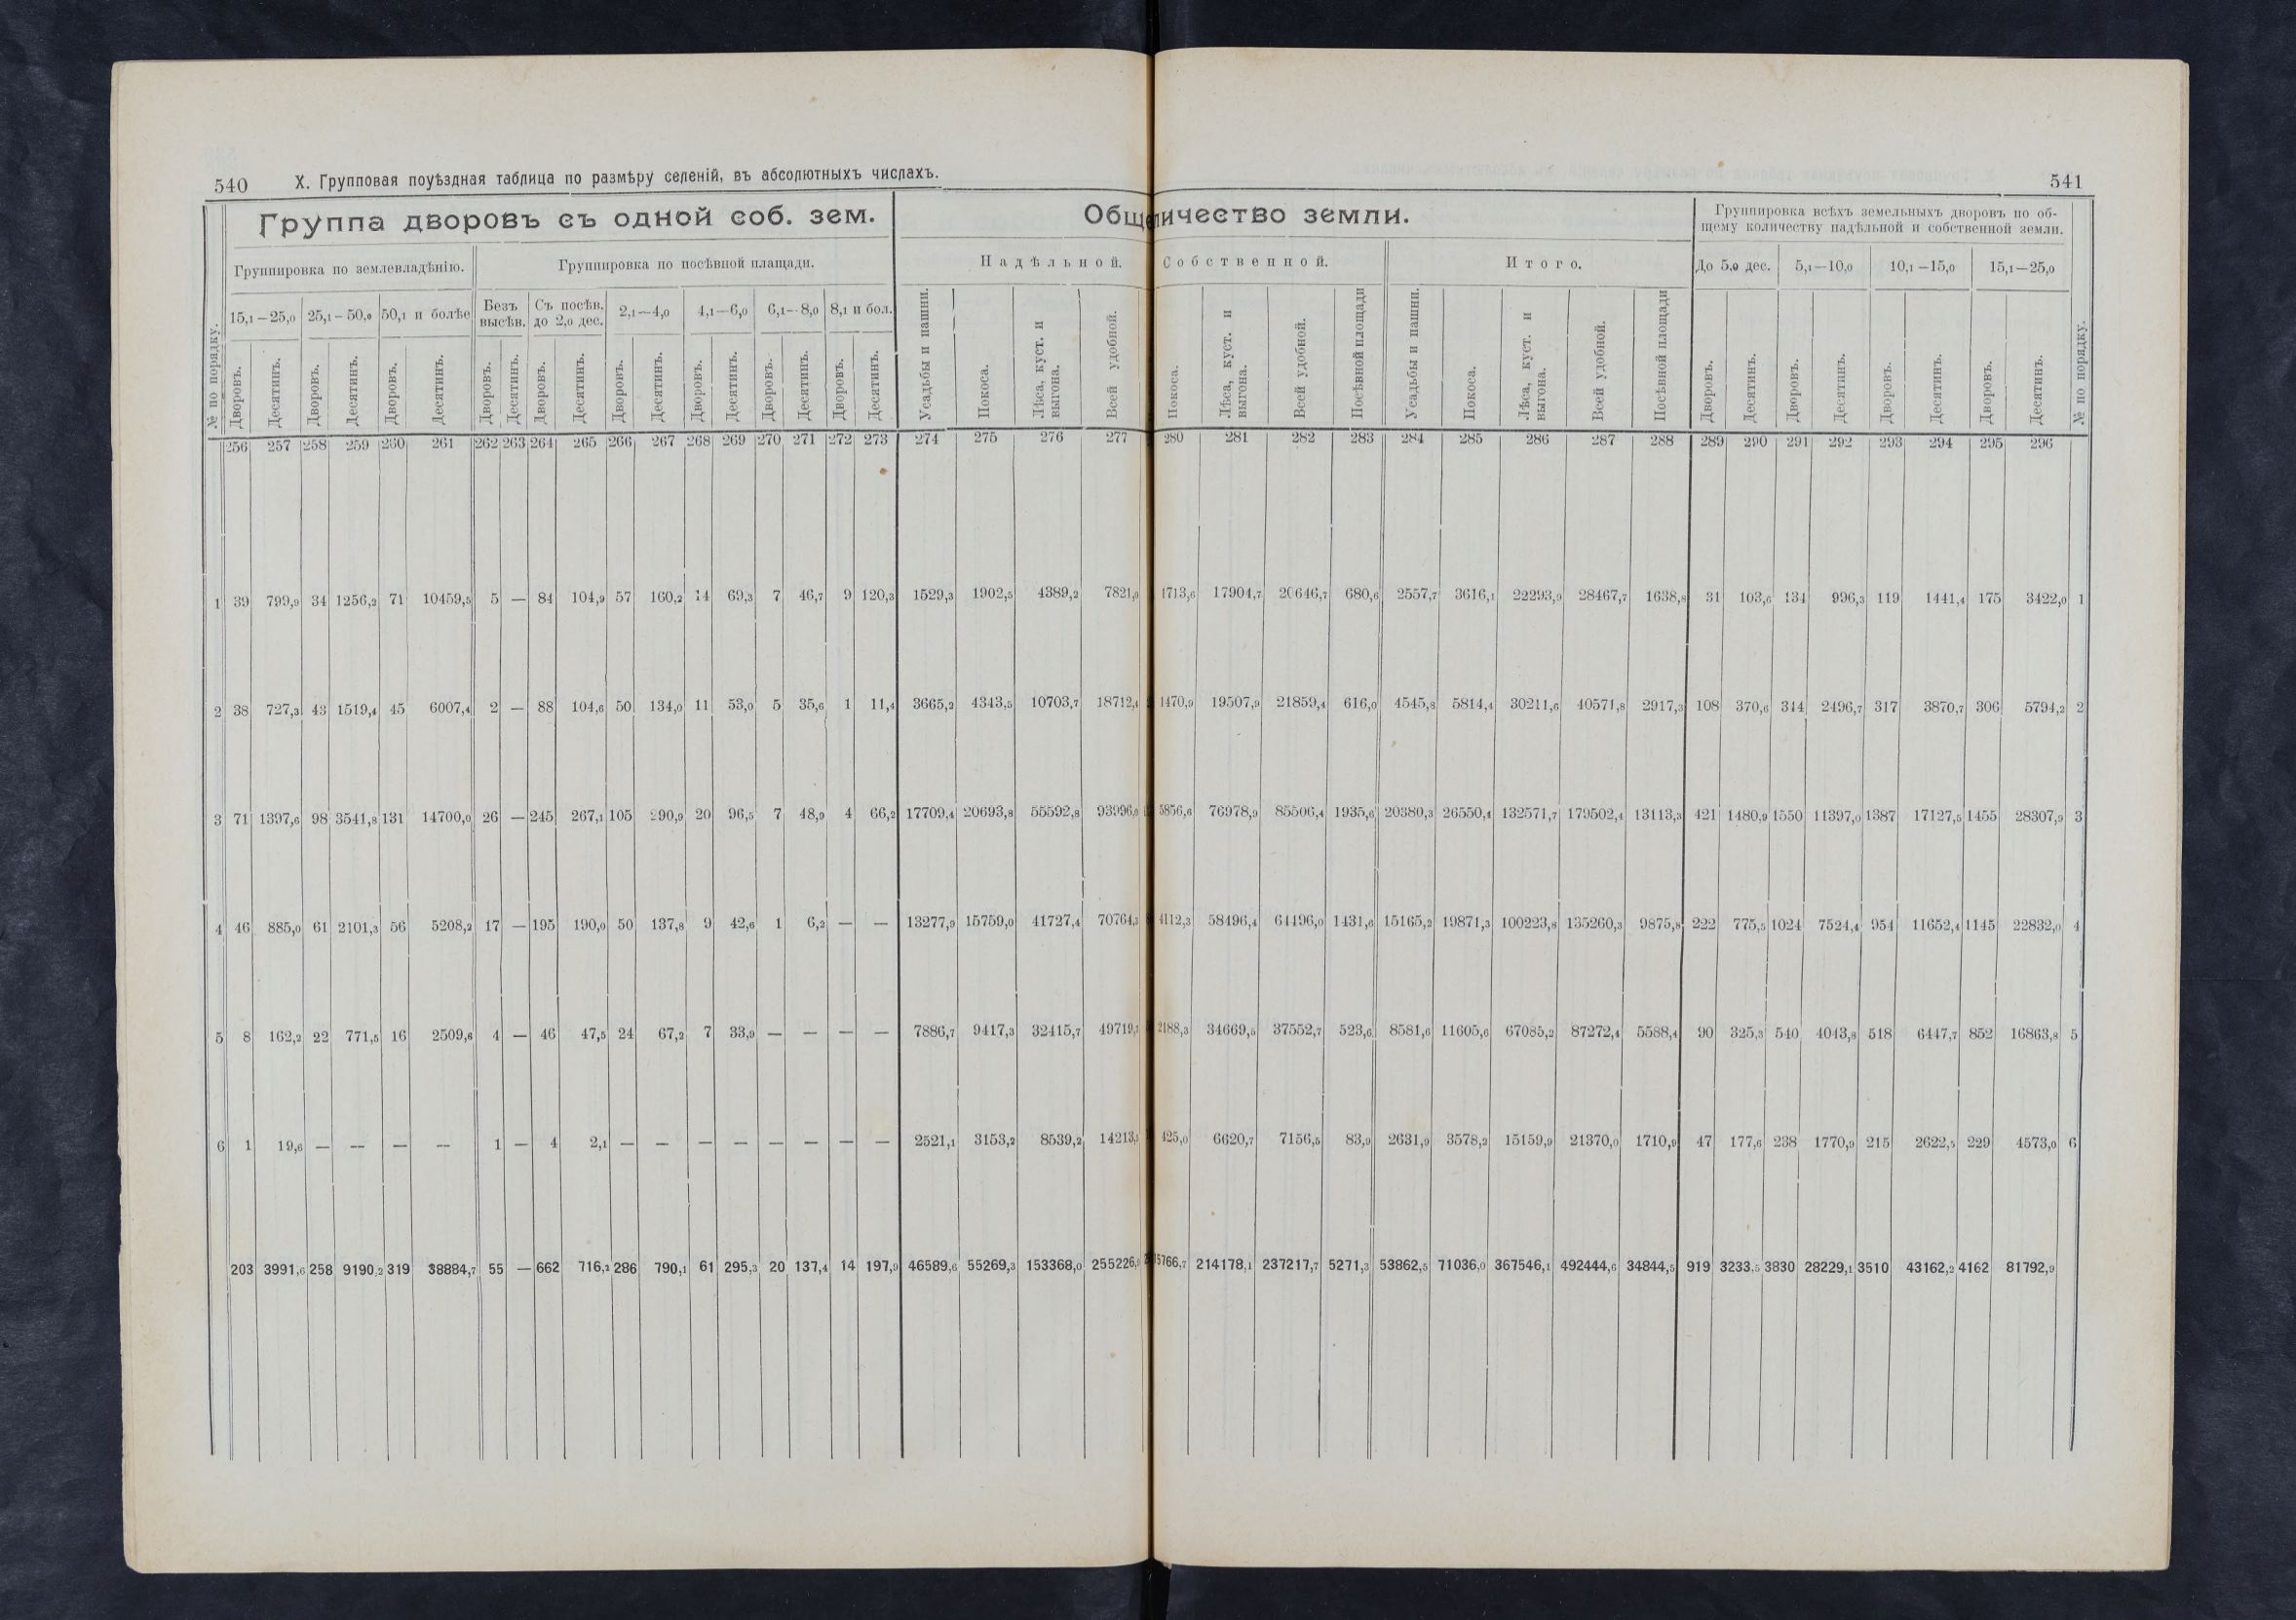 540 X. Групповая поуѣздная таблица по размѣру селеній, въ абсолютныхъ числахъ.
541
Группа дворовъ съ одной соб. зем.
Группировка по землевладѣнію. Группировка по посѣвной площади.
15,1—25,0 25,1—50,0 50,1 и болѣе Безъ высѣв. Съ посѣв. до 2,0 дес. 2,1—4,0 4,1—6,0 6,1—8,0 8,1 и бол.
№ по порядку. Дворовъ. Десятинъ. Дворовъ. Десятинъ. Дворовъ. Десятинъ. Дворовъ. Десятинъ. Дворовъ. Десятинъ. Дворовъ. Десятинъ. Дворовъ. Десятинъ. Дворовъ. Десятинъ. Дворовъ. Десятинъ.
Надѣльной. Собственной. Итого.
Усадьбы и пашни. Покоса. Лѣса, куст. и выгона. Всей удобной. Покоса. Лѣса, куст. и выгона. Всей удобной. Посѣвной площади Усадьбы и пашни. Покоса. Лѣса, куст. и выгона. Всей удобной. Посѣвной площади
Группировка всѣхъ земельныхъ дворовъ по об-
щему количеству надѣльной и собственной земли.
До 5,0 дес. 5,1—10,0 10,1—15,0 15,1—25,0
Дворовъ. Десятинъ. Дворовъ. Десятинъ. Дворовъ. Десятинъ. Дворовъ. Десятинъ. № по порядку.
256 257 258 259 260 261 262 263 264 265 266 267 268 269 270 271 272 273 274 275 276 277 280 281 282 283 284 285 286 287 288 289 290 291 292 293 294 295 296
1 39 799,9 34 1256,2 71 10459,5 5 — 84 104,9 57 160,2 14 69,3 7 46,7 9 120,3 1529,3 1902,5 4389,2 7821,0 1713,6 17904,7 20646,7 680,6 2557,7 3616,1 22293,9 28467,7 1638,8 31 103,6 134 996,3 119 1441,4 175 3422,0 1
2 38 727,3 43 1519,4 45 6007,4 2 — 88 104,6 50 134,0 11 53,0 5 35,6 1 11,4 3665,2 4343,5 10703,7 18712,4 1470,9 19507,9 21859,4 616,0 4545,8 5814,4 30211,6 40571,8 2917,3 108 370,6 344 2496,7 317 3870,7 306 5794,2 2
3 71 1397,6 98 3541,8 131 14700,0 26 — 245 267,1 105 290,9 20 96,5 7 48,9 4 66,2 17709,4 20693,8 55592,8 93996,0 5856,6 76978,9 85506,4 1935,6 20380,3 26550,4 132571,7 179502,4 13113,3 421 1480,9 1550 11397,0 1387 17127,5 1455 28307,9 3
4 46 885,0 61 2101,3 56 5208,2 17 — 195 190,0 50 137,8 9 42,6 1 6,2 — — 13277,9 15759,0 41727,4 70764,3 4112,3 58496,4 64496,0 1431,6 15165,2 19871,3 100223,8 135260,3 9875,8 222 775,5 1024 7524,4 954 11652,4 1145 22832,0 4
5 8 162,2 22 771,5 16 2509,6 4 — 46 47,5 24 67,2 7 33,9 — — — — 7886,7 9417,3 32415,7 2188,3 34669,5 37552,7 523,6 8581,6 11605,6 67085,2 87272,4 5588,4 90 325,3 540 4043,8 518 6447,7 852 16863,8 5
6 1 19,6 — — — — 1 — 4 2,1 — — — — — — — — 2521,1 3153,2 8539,2 425,0 6620,7 7156,5 83,9 2631,9 3578,2 15159,9 21370,0 1710,9 47 177,6 238 1770,9 215 2622,5 229 4573,0 6
203 3991,6 258 9190,2 319 38884,7 55 — 662 716,2 286 790,1 61 295,3 20 137,4 14 197,9 46589,6 55269,3 153368,0 214178,1 237217,7 5271,3 53862,5 71036,0 367546,1 492444,6 34844,5 919 3233,5 3830 28229,1 3510 43162,2 4162 81792,9